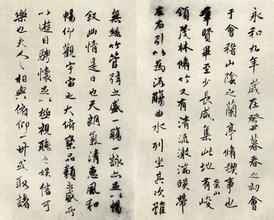 永和九年歲在癸丑暮春之初會
于會稽山陰之蘭亭脩稧事也
羣賢畢至少長咸集此地有崇山峻
領茂林脩竹又有清流激湍暎帶
左右引以為流觴曲水列坐其次雖
無絲竹管弦之盛一觴一詠亦足以暢
敘幽情是日也天朗氣清惠風和
暢仰觀宇宙之大俯察品類之盛所
以遊目騁懷足以極視聽之娛信可
樂也夫人之相與俯仰一世或取諸